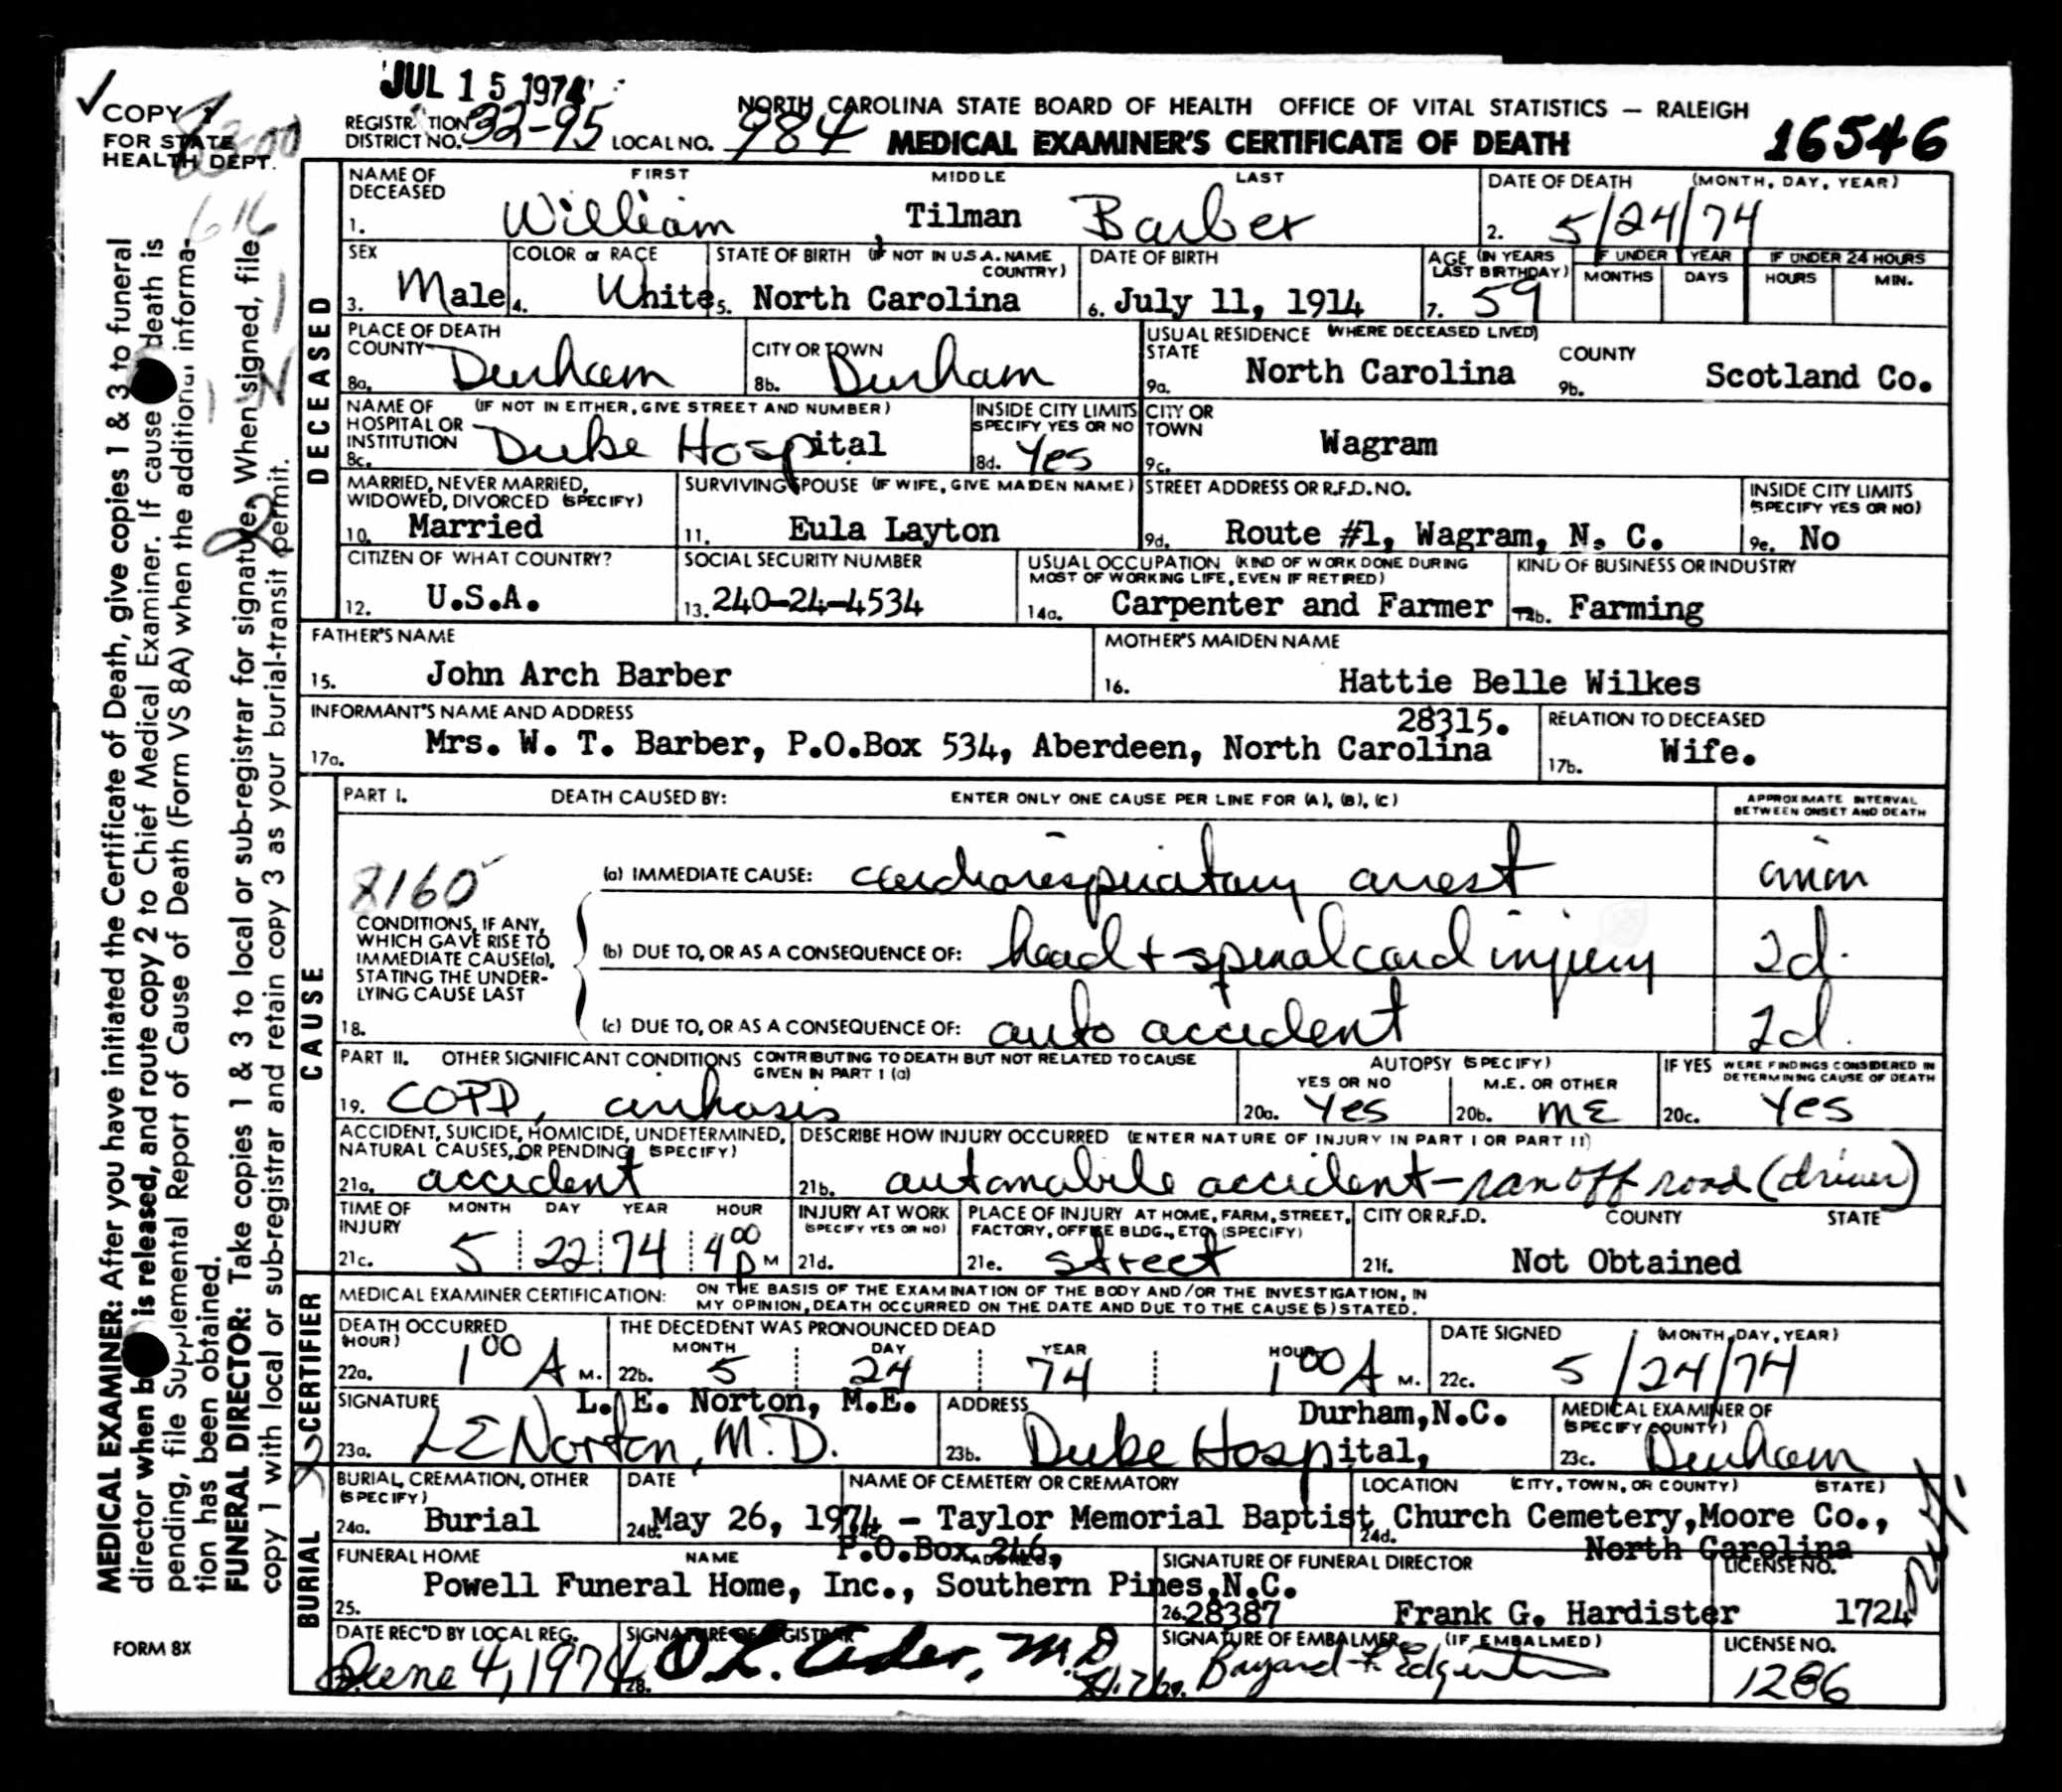 JUL 15 1974
✓ COPY 1
FOR STATE
HEALTH DEPT.
616
REGISTRATION DISTRICT NO. 32-95 LOCAL NO. 984
NORTH CAROLINA STATE BOARD OF HEALTH OFFICE OF VITAL STATISTICS — RALEIGH
MEDICAL EXAMINER'S CERTIFICATE OF DEATH 16546
MEDICAL EXAMINER: After you have initiated the Certificate of Death, give copies 1 & 3 to funeral
director when b is released, and route copy 2 to Chief Medical Examiner. If cause death is
pending, file Supplemental Report of Cause of Death (Form VS 8A) when the additional informa-
tion has been obtained.
FUNERAL DIRECTOR: Take copies 1 & 3 to local or sub-registrar for signature. When signed, file
copy 1 with local or sub-registrar and retain copy 3 as your burial-transit permit.
FORM 8X
DECEASED
NAME OF DECEASED FIRST MIDDLE LAST
1. William Tilman Barber
DATE OF DEATH (MONTH, DAY, YEAR)
2. 5/24/74
SEX
3. Male
COLOR or RACE
4. White
STATE OF BIRTH (IF NOT IN U.S.A. NAME COUNTRY)
5. North Carolina
DATE OF BIRTH
6. July 11, 1914
AGE (IN YEARS LAST BIRTHDAY)
7. 59
IF UNDER 1 YEAR
MONTHS DAYS
IF UNDER 24 HOURS
HOURS MIN.
PLACE OF DEATH
COUNTY
8a. Durham
CITY OR TOWN
8b. Durham
USUAL RESIDENCE (WHERE DECEASED LIVED)
STATE
9a. North Carolina
COUNTY
9b. Scotland Co.
NAME OF HOSPITAL OR INSTITUTION (IF NOT IN EITHER, GIVE STREET AND NUMBER)
8c. Duke Hospital
INSIDE CITY LIMITS SPECIFY YES OR NO
8d. Yes
CITY OR TOWN
9c. Wagram
MARRIED, NEVER MARRIED, WIDOWED, DIVORCED (SPECIFY)
10. Married
SURVIVING SPOUSE (IF WIFE, GIVE MAIDEN NAME)
11. Eula Layton
STREET ADDRESS OR R.F.D. NO.
9d. Route #1, Wagram, N. C.
INSIDE CITY LIMITS (SPECIFY YES OR NO)
9e. No
CITIZEN OF WHAT COUNTRY?
12. U.S.A.
SOCIAL SECURITY NUMBER
13. 240-24-4534
USUAL OCCUPATION (KIND OF WORK DONE DURING MOST OF WORKING LIFE, EVEN IF RETIRED)
14a. Carpenter and Farmer
KIND OF BUSINESS OR INDUSTRY
14b. Farming
FATHER'S NAME
15. John Arch Barber
MOTHER'S MAIDEN NAME
16. Hattie Belle Wilkes
INFORMANT'S NAME AND ADDRESS 28315.
17a. Mrs. W. T. Barber, P.O.Box 534, Aberdeen, North Carolina
RELATION TO DECEASED
17b. Wife.
CAUSE
PART I. DEATH CAUSED BY: ENTER ONLY ONE CAUSE PER LINE FOR (A), (B), (C)
APPROXIMATE INTERVAL BETWEEN ONSET AND DEATH
8160
(a) IMMEDIATE CAUSE: cardiorespiratory arrest
CONDITIONS, IF ANY, WHICH GAVE RISE TO IMMEDIATE CAUSE(a), STATING THE UNDER-LYING CAUSE LAST
18.
(b) DUE TO, OR AS A CONSEQUENCE OF: head + spinal cord injury 2d.
(c) DUE TO, OR AS A CONSEQUENCE OF: auto accident 2d.
PART II. OTHER SIGNIFICANT CONDITIONS CONTRIBUTING TO DEATH BUT NOT RELATED TO CAUSE GIVEN IN PART I (a)
19. COPD, cirrhosis
AUTOPSY (SPECIFY)
YES OR NO
20a. Yes
M.E. OR OTHER
20b. ME
IF YES WERE FINDINGS CONSIDERED IN DETERMINING CAUSE OF DEATH
20c. Yes
ACCIDENT, SUICIDE, HOMICIDE, UNDETERMINED, NATURAL CAUSES, OR PENDING (SPECIFY)
21a. accident
DESCRIBE HOW INJURY OCCURRED (ENTER NATURE OF INJURY IN PART I OR PART II)
21b. automobile accident - ran off road (driver)
TIME OF INJURY MONTH DAY YEAR HOUR
21c. 5 22 74 4 00 P M
INJURY AT WORK (SPECIFY YES OR NO)
21d.
PLACE OF INJURY AT HOME, FARM, STREET, FACTORY, OFFICE BLDG., ETC. (SPECIFY)
21e. street
CITY OR R.F.D. COUNTY STATE
21f. Not Obtained
CERTIFIER
MEDICAL EXAMINER CERTIFICATION: ON THE BASIS OF THE EXAMINATION OF THE BODY AND/OR THE INVESTIGATION, IN MY OPINION, DEATH OCCURRED ON THE DATE AND DUE TO THE CAUSE(S) STATED.
DEATH OCCURRED (HOUR)
22a. 1 00 A M.
THE DECEDENT WAS PRONOUNCED DEAD
MONTH DAY YEAR HOUR
22b. 5 24 74 1 00 A M.
DATE SIGNED (MONTH, DAY, YEAR)
22c. 5/24/74
SIGNATURE L. E. Norton, M.E.
23a. L E Norton, M.D.
ADDRESS Durham, N.C.
23b. Duke Hospital,
MEDICAL EXAMINER OF (SPECIFY COUNTY)
23c. Durham
BURIAL
BURIAL, CREMATION, OTHER (SPECIFY)
24a. Burial
DATE
24b. May 26, 1974 -
NAME OF CEMETERY OR CREMATORY
Taylor Memorial Baptist Church Cemetery, Moore Co.,
LOCATION (CITY, TOWN, OR COUNTY) (STATE)
24d. North Carolina
FUNERAL HOME NAME ADDRESS P.O.Box 246,
25. Powell Funeral Home, Inc., Southern Pines, N.C.
28387
SIGNATURE OF FUNERAL DIRECTOR
26. Frank G. Hardister
LICENSE NO.
1724
DATE REC'D BY LOCAL REG.
June 4, 1974
SIGNATURE OF REGISTRAR
28.
SIGNATURE OF EMBALMER (IF EMBALMED)
29.
LICENSE NO.
1286